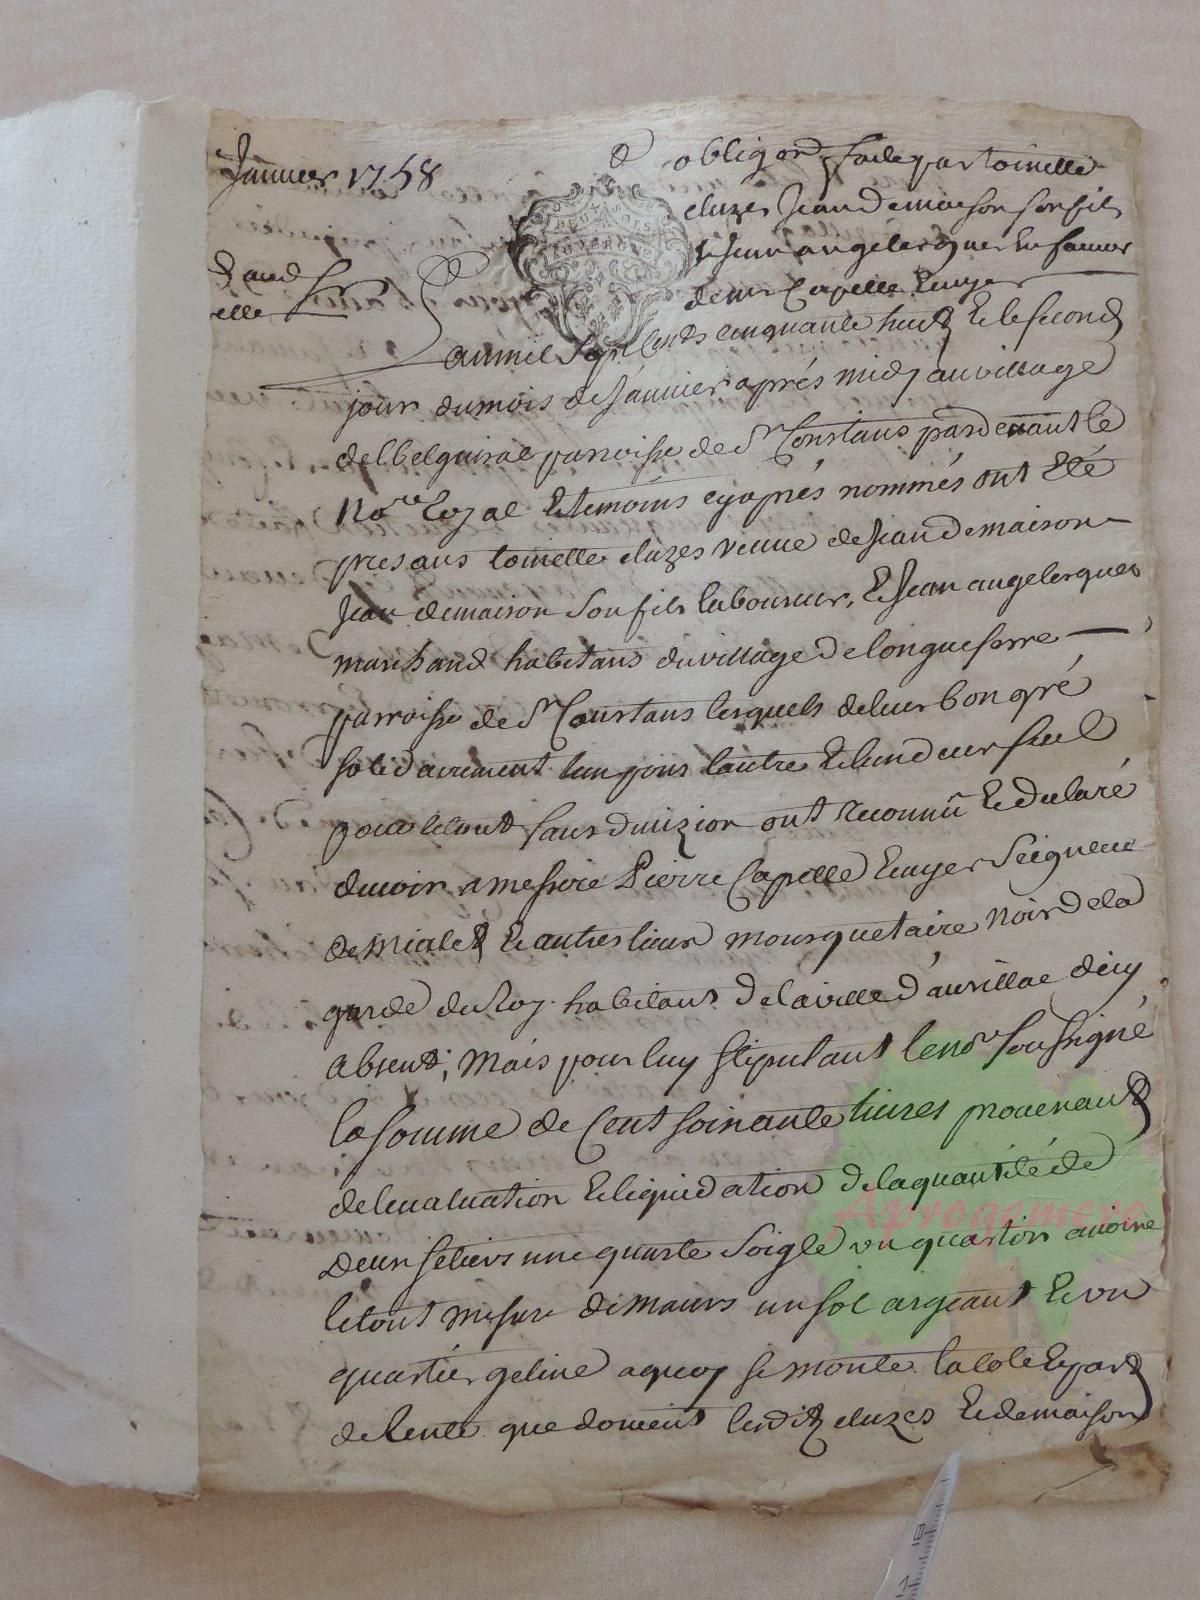 Janvier 1758
obligaon faite par toinette
cluzes Jean demaison son fils
& Jean angelergues En faveur
de mr Capelle Ecuyer
DEUX SOLS
Lan mil Sept Cents cinquante huit Et le second
jour du mois de Janvier aprés midy au village
del belguiral parroisse de St Constans pardevant le
Nore Royal Et temoins cy aprés nommés ont Eté
presans toinette cluzes veuve de Jean demaison
Jean demaison son fils laboureur, Et Jean angelergues
marchand habitans du village de longueserre
parroisse de St Constans lesquels de leur bon gré
solidairement lun pour lautre Et lun deux seul
pour le tout sans divizion ont reconnû Et declaré
devoir a messire Pierre Capelle Ecuyer Seigneur
de mialet Et autres lieux mousquetaire Noir de la
garde du Roy habitant de la ville d'aurillac d'icy
absent; Mais pour luy stipulant le nore soussigné
la somme de Cent soixante livres provenant
de levaluation Et liquidation de la quantité de
deux setiers une quarte Soigle un quarton avoine
le tout mesure de maurs un sol argeant Et un
quartier geline a quoy se monte la cote Et part
de rente que doivent lesdits cluzes Et demaison
Aprogemere